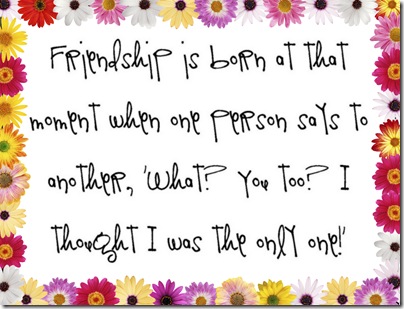 Friendship is born at that
moment when one person says to
another, 'What? You too? I
thought I was the only one!'